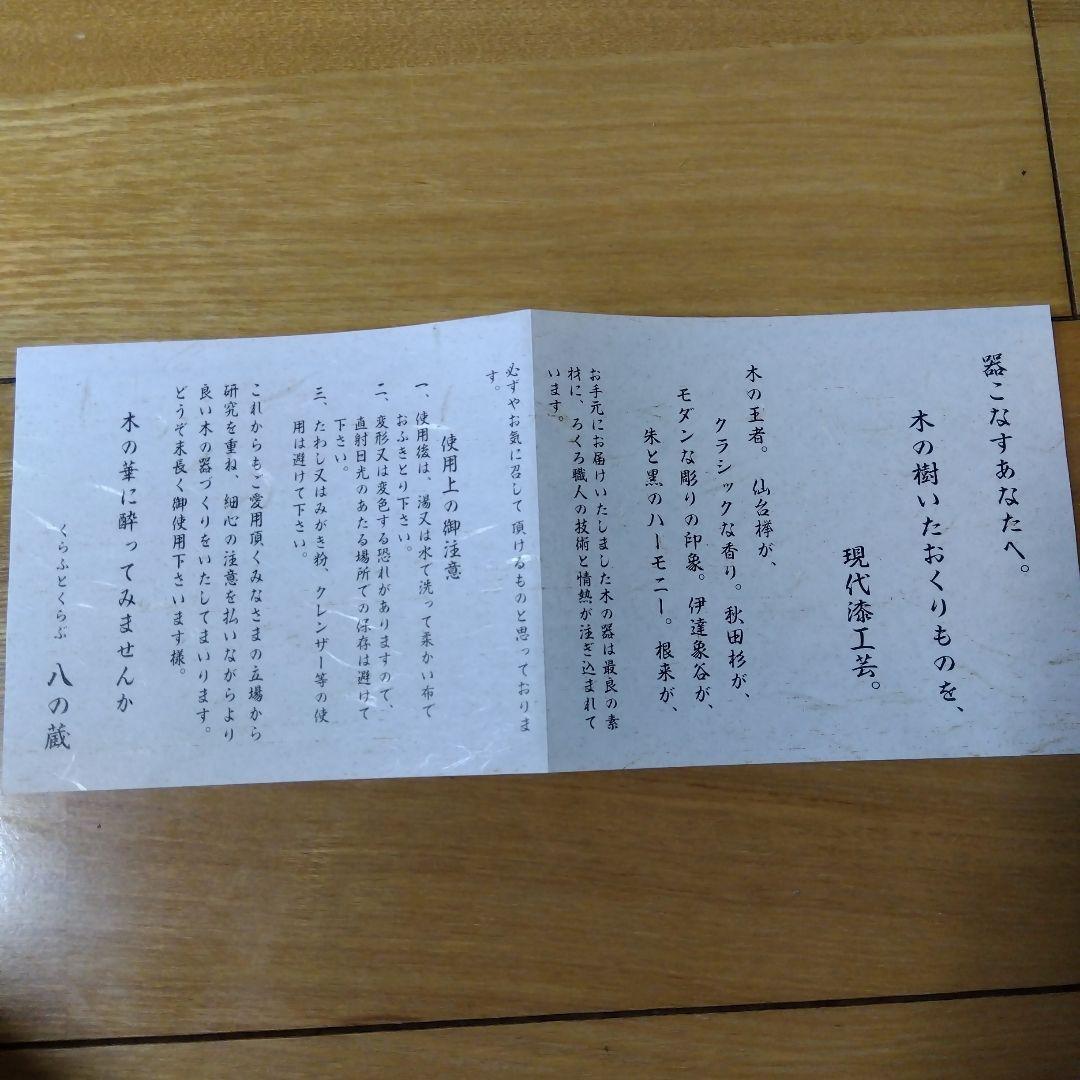 器こなすあなたへ。
木の樹いたおくりものを、
現代漆工芸。
木の王者。 仙台欅が、
クラシックな香り。秋田杉が、
モダンな彫りの印象。伊達象谷が、
朱と黒のハーモニー。根来が、
お手元にお届けいたしました木の器は最良の素
材に、ろくろ職人の技術と情熱が注ぎ込まれて
います。
必ずやお気に召して頂けるものと思っておりま
す。
使用上の御注意
一、使用後は、湯又は水で洗って柔かい布で
おふきとり下さい。
二、変形又は変色する恐れがありますので、
直射日光のあたる場所での保存は避けて
下さい。
三、たわし又はみがき粉、クレンザー等の使
用は避けて下さい。
これからもご愛用頂くみなさまの立場から
研究を重ね、細心の注意を払いながらより
良い木の器づくりをいたしてまいります。
どうぞ末長く御使用下さいます様。
木の華に酔ってみませんか
くらふとくらぶ 八の蔵